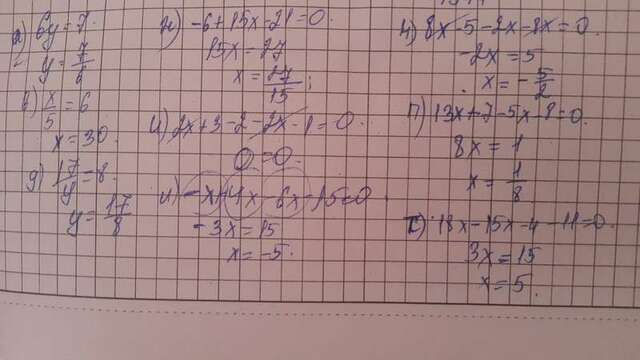 а) 6y = 7.
y = 7/6
в) x/5 = 6
x = 30.
д) 17/y = 8.
y = 17/8
ж) -6 + 15x - 21 = 0.
15x = 27
x = 27/15;
и) 2x + 3 - 2 - 2x - 1 = 0.
0 = 0.
л) -x + 4x - 6x - 15 = 0.
-3x = 15
x = -5.
н) 8x - 5 - 2x - 8x = 0.
-2x = 5
x = -5/2
п) 13x + 7 - 5x - 8 = 0.
8x = 1
x = 1/8
с) 18x - 15x - 4 - 11 = 0.
3x = 15
x = 5.